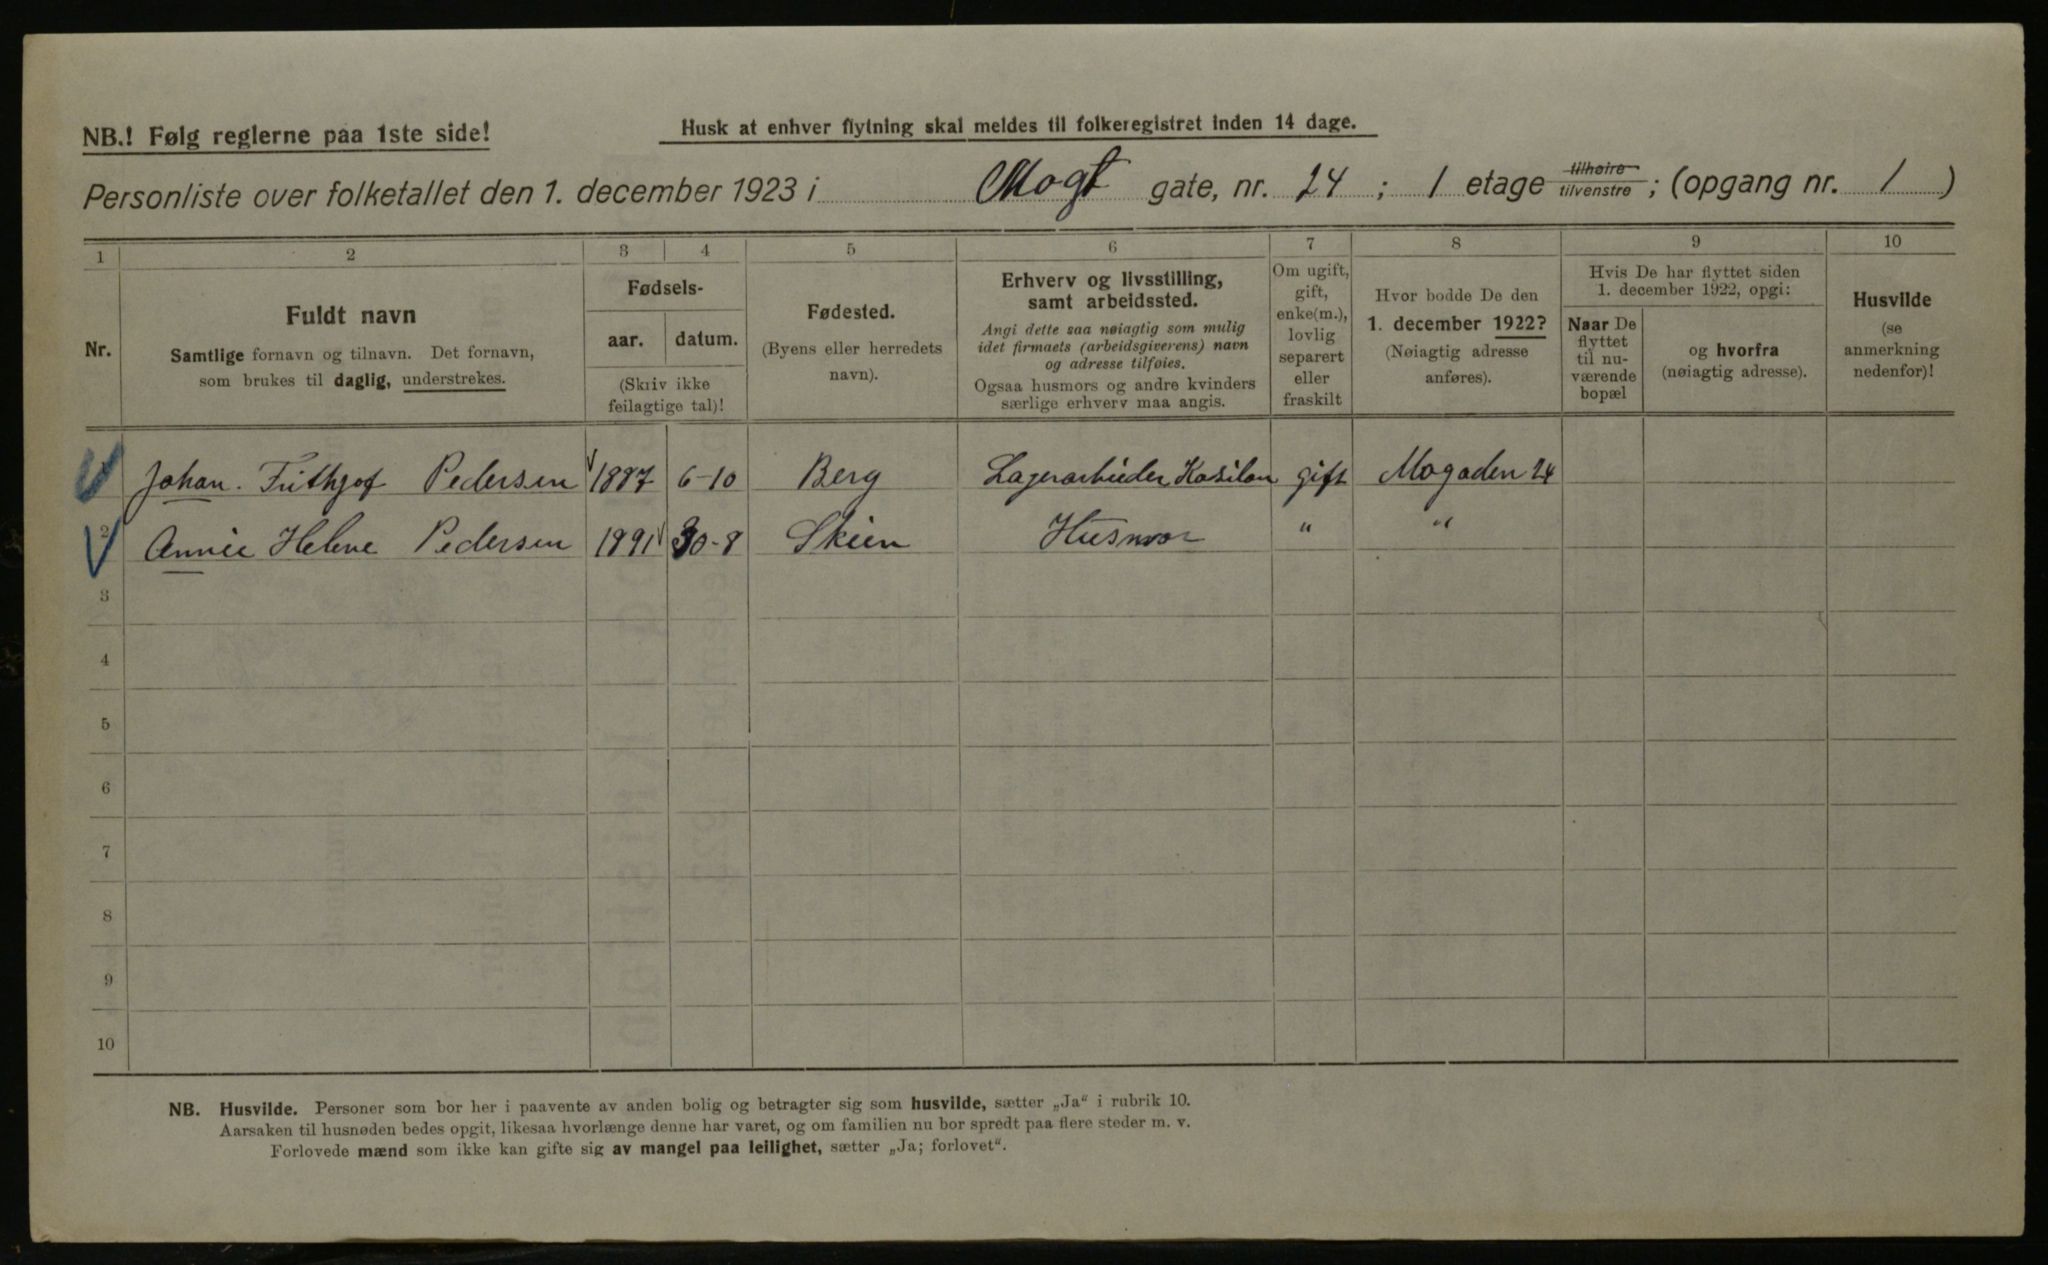 NB.! Følg reglerne paa 1ste side!
Husk at enhver flytning skal meldes til folkeregistret inden 14 dage.
Personliste over folketallet den 1. december 1923 i Mogt gate, nr. 24 ; 1 etage tilhøire tilvenstre ; (opgang nr. 1 )
1 2 3 4 5 6 7 8 9 10
Nr.
Fuldt navn
Samtlige fornavn og tilnavn. Det fornavn,
som brukes til daglig, understrekes.
Fødsels-
aar. datum.
(Skriv ikke
feilagtige tal)!
Fødested.
(Byens eller herredets
navn).
Erhverv og livsstilling,
samt arbeidssted.
Angi dette saa nøiagtig som mulig
idet firmaets (arbeidsgiverens) navn
og adresse tilføies.
Ogsaa husmors og andre kvinders
særlige erhverv maa angis.
Om ugift,
gift,
enke(m.),
lovlig
separert
eller
fraskilt
Hvor bodde De den
1. december 1922?
(Nøiagtig adresse
anføres).
Hvis De har flyttet siden
1. december 1922, opgi:
Naar De
flyttet
til nu-
værende
bopæl
og hvorfra
(nøiagtig adresse).
Husvilde
(se
anmerkning
nedenfor)!
Johan. Frithjof Pedersen 1887 6-10 Berg Lagerarbeider gift Mogaden 24
2 Annie Helene Pedersen 1891 30-8 Skien Husmor " "
3
4
5
6
7
8
9
10
NB. Husvilde. Personer som bor her i paavente av anden bolig og betragter sig som husvilde, sætter „Ja“ i rubrik 10.
Aarsaken til husnøden bedes opgit, likesaa hvorlænge denne har varet, og om familien nu bor spredt paa flere steder m. v.
Forlovede mænd som ikke kan gifte sig av mangel paa leilighet, sætter „Ja; forlovet“.